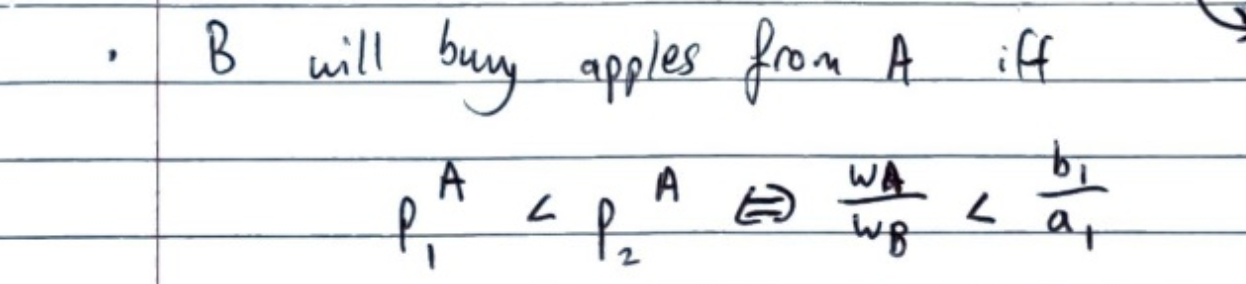 · B will buy apples from A iff
p₁ᴬ < p₂ᴬ ⇔ wA/wB < b₁/a₁